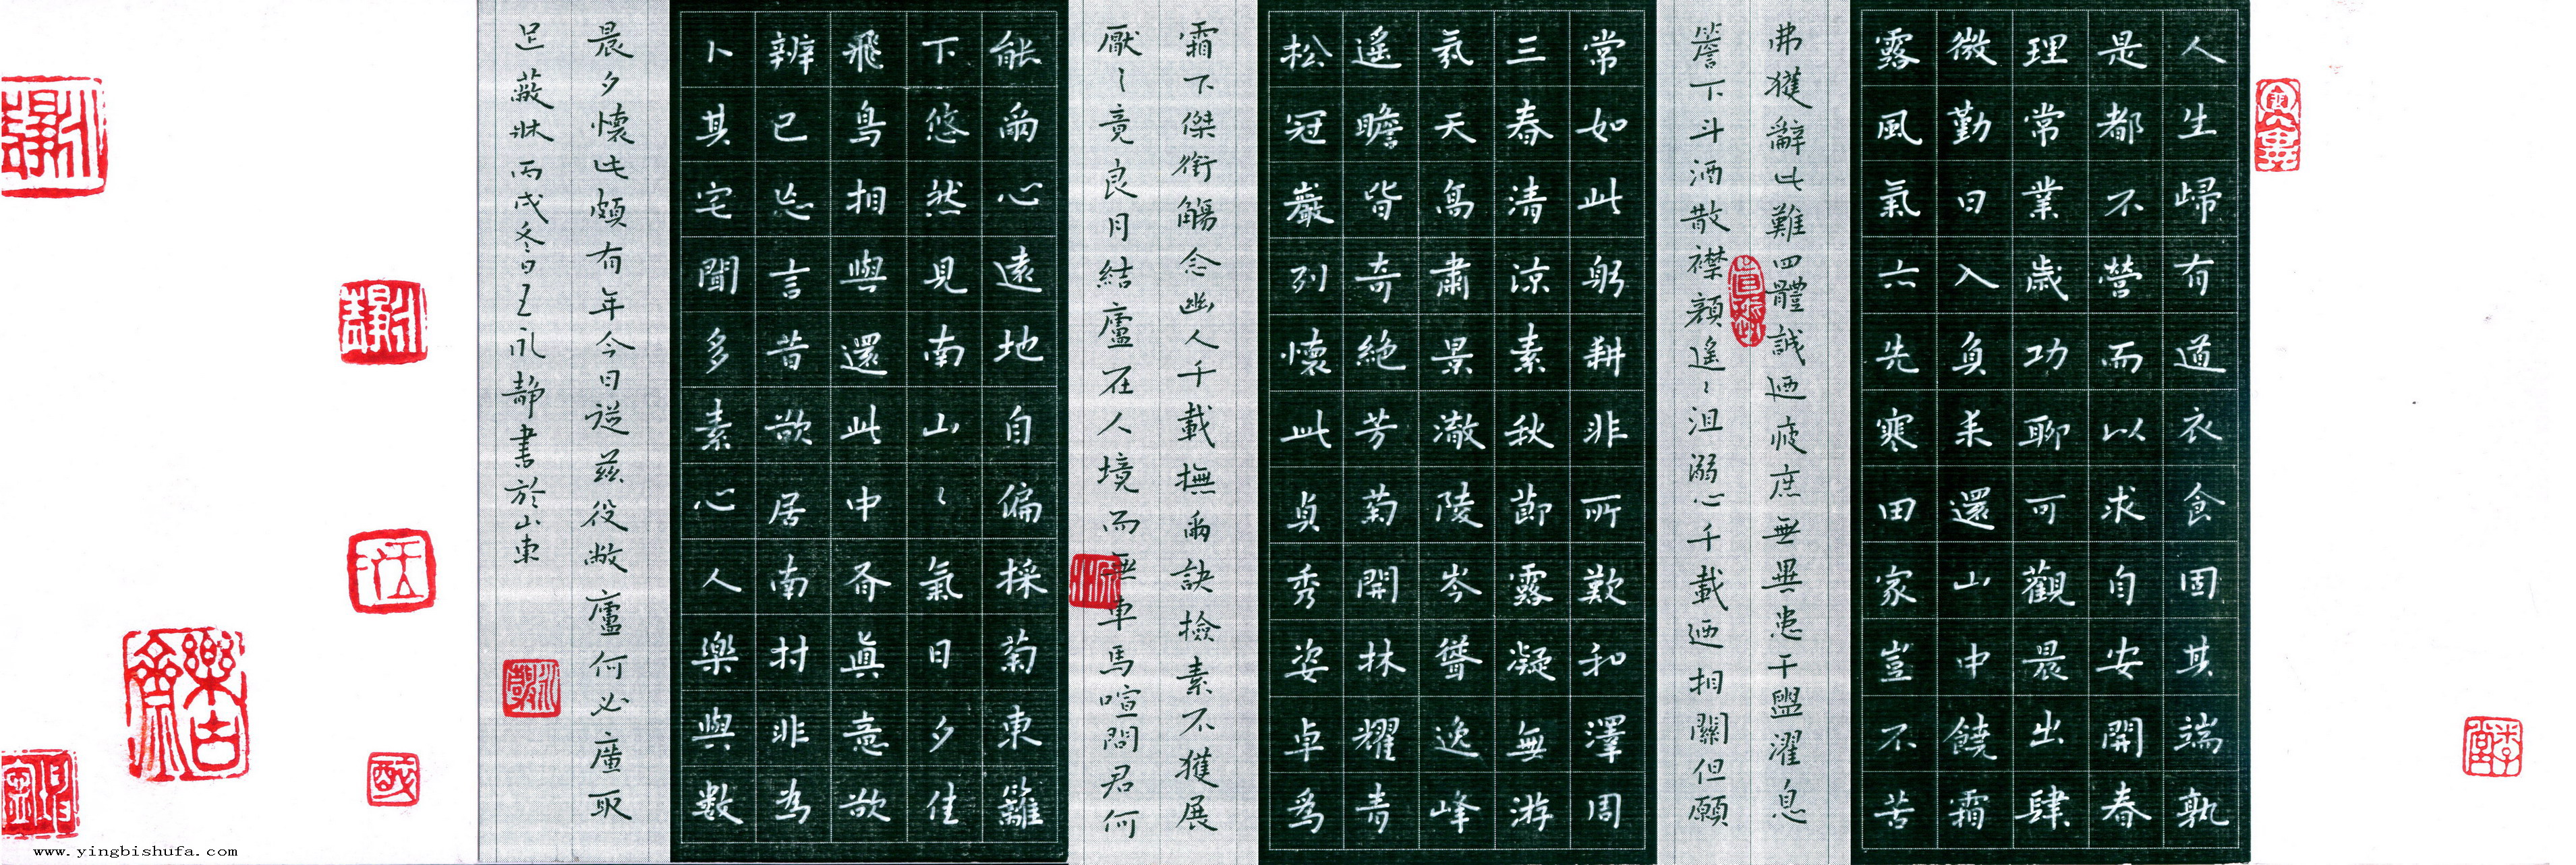 人生歸有道衣食固其端孰
是都不營而以求自安開春
理常業歲功聊可觀晨出肆
微勤日入負耒還山中饒霜
露風氣亦先寒田家豈不苦
弗獲辭此難四體誠迺疲庶無異患干盥濯息
簷下斗酒散襟顏遙〻沮溺心千載迺相關但願
常如此躬耕非所歎和澤周
三春清涼素秋節露凝無游
氛天高肅景澈陵岑聳逸峰
遙瞻皆奇絕芳菊開林耀青
松冠巖列懷此貞秀姿卓為
霜下傑銜觴念幽人千載撫爾訣檢素不獲展
厭〻竟良月結廬在人境而無車馬喧問君何
能爾心遠地自偏採菊東籬
下悠然見南山〻氣日夕佳
飛鳥相與還此中有真意欲
辨已忘言昔欲居南村非為
卜其宅聞多素心人樂與數
晨夕懷此頗有年今日從茲役敝廬何必廣取
足蔽牀丙戌冬日王靜書於山東
樂古齋
www.yingbishufa.com